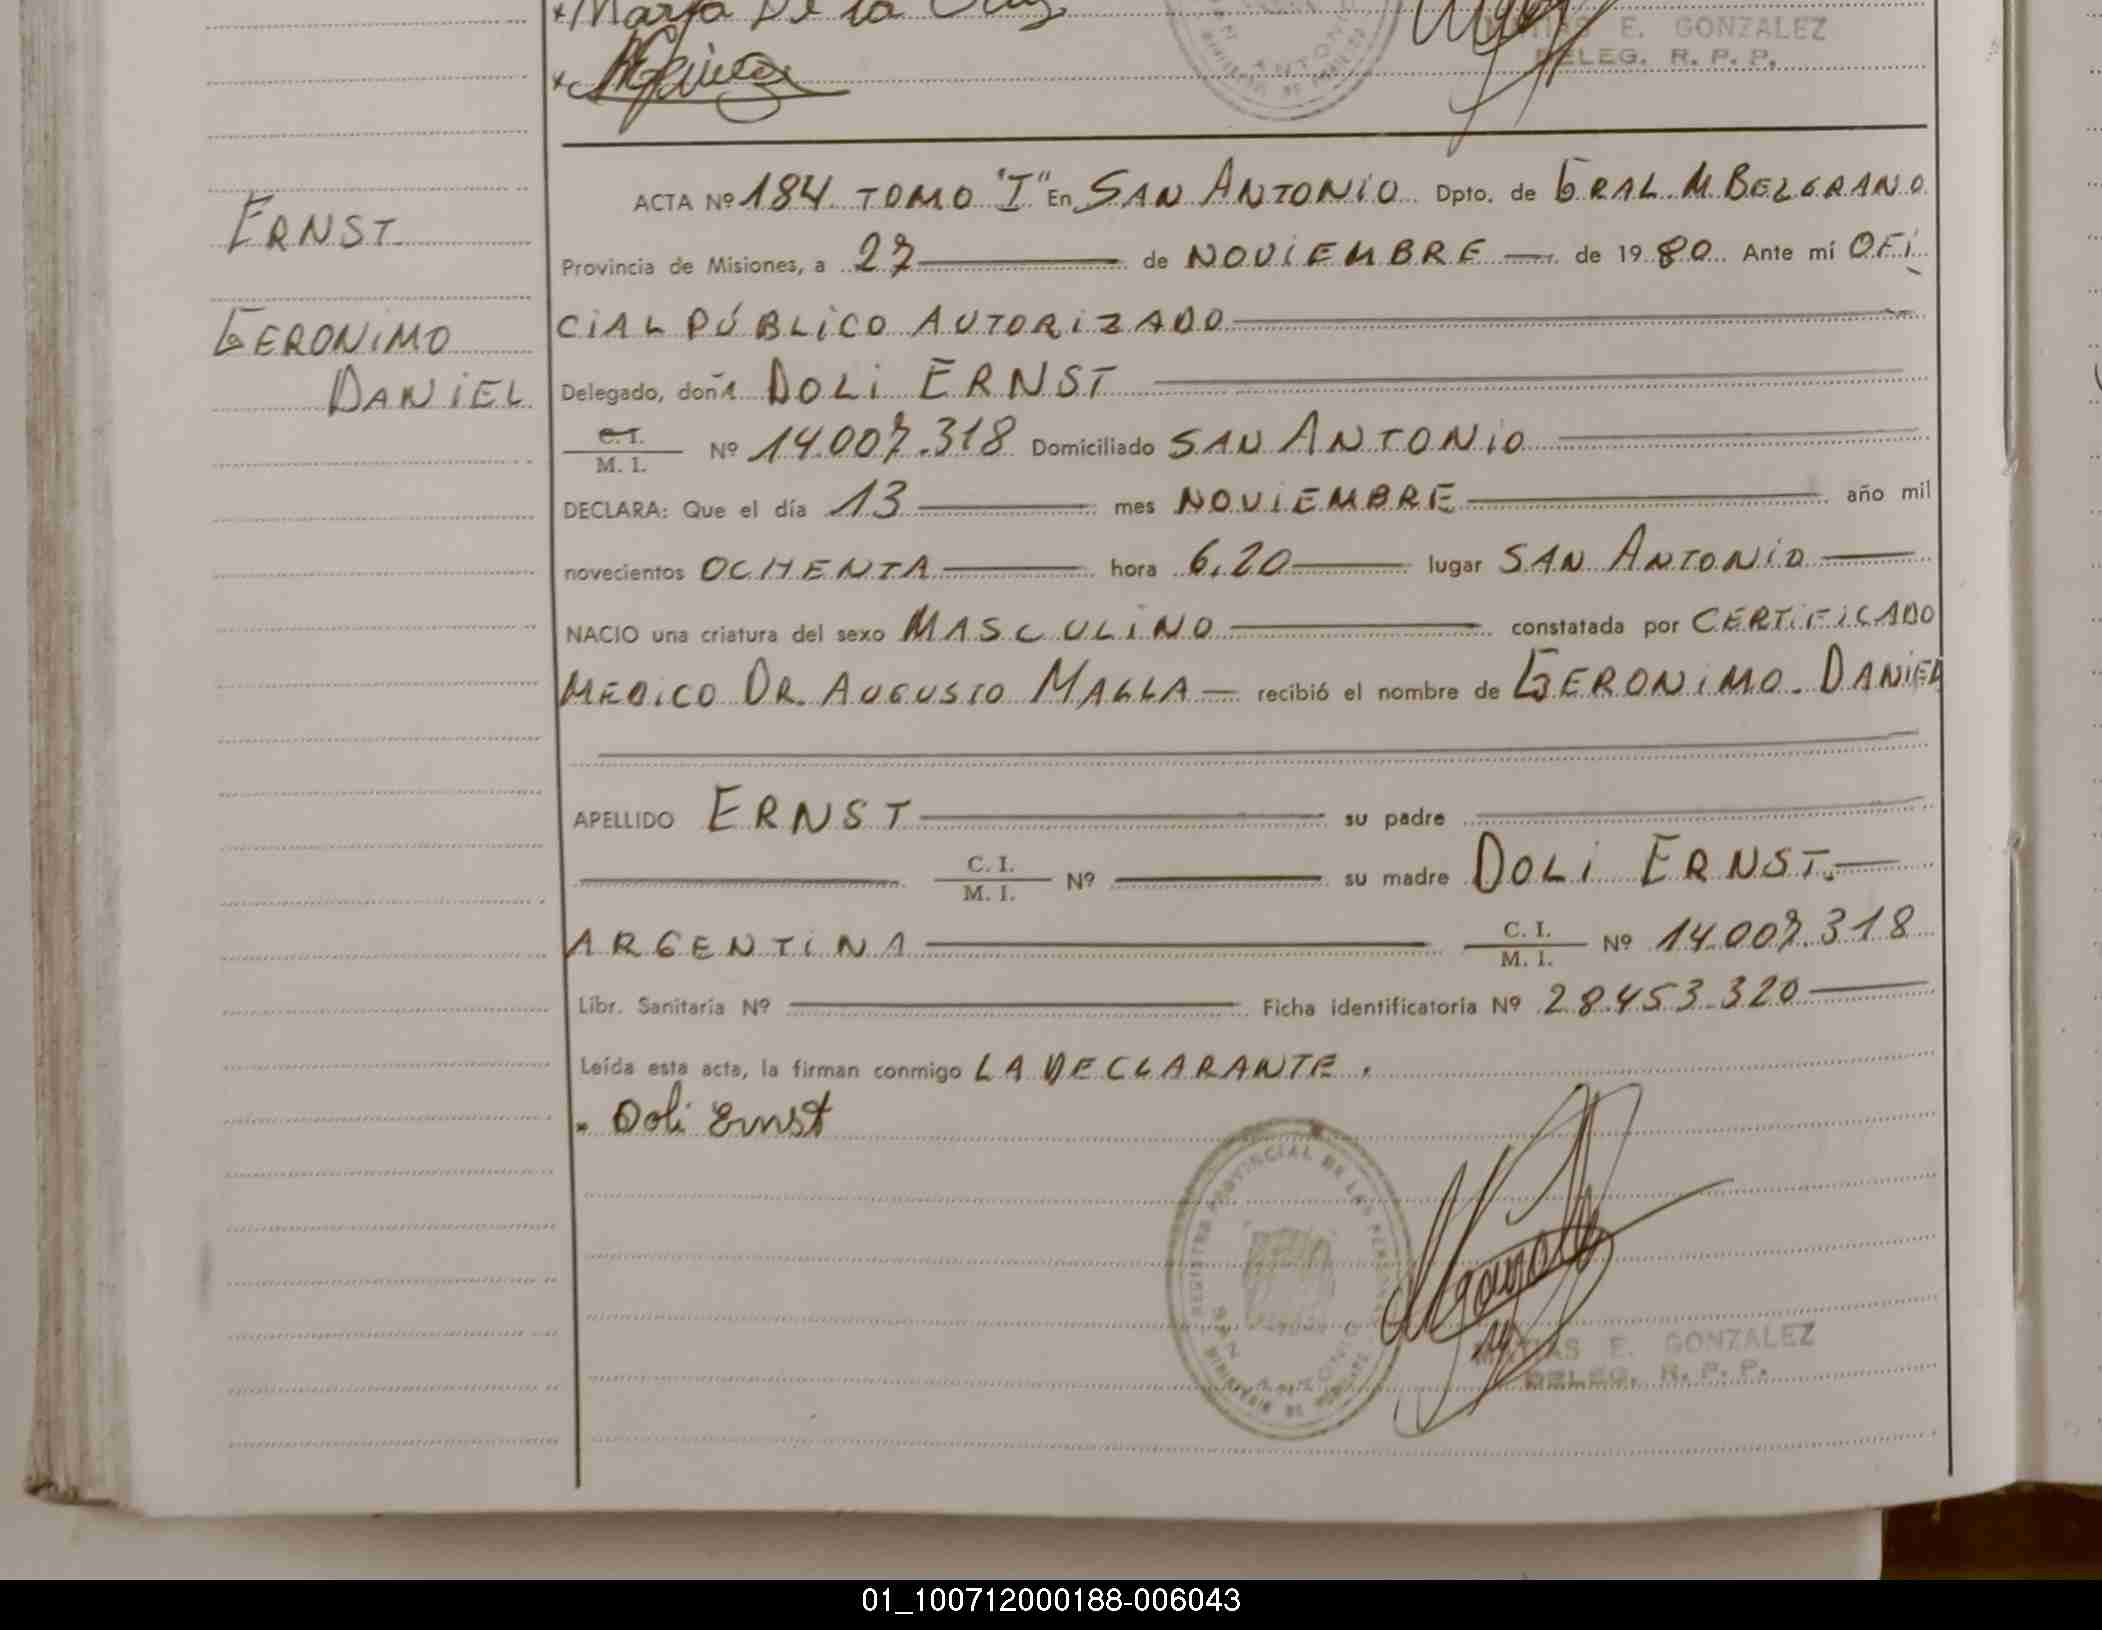 María De la Cruz
MATIAS E. GONZALEZ
DELEG. R. P. P.
ERNST
GERONIMO
DANIEL
ACTA Nº 184 TOMO "I" En SAN ANTONIO Dpto. de GRAL M. BELGRANO
Provincia de Misiones, a 27 de NOVIEMBRE de 1980 Ante mí OFI
CIAL PÚBLICO AUTORIZADO
Delegado, doñA DOLI ERNST
C. I.
M. I. Nº 14.007.318 Domiciliado SAN ANTONIO
DECLARA: Que el día 13 mes NOVIEMBRE año mil
novecientos OCHENTA hora 6,20 lugar SAN ANTONIO
NACIO una criatura del sexo MASCULINO constatada por CERTIFICADO
MEDICO DR. AUGUSTO MALLA recibió el nombre de GERONIMO DANIEL
APELLIDO ERNST su padre
C. I.
M. I. Nº su madre DOLI ERNST.
ARGENTINA C. I.
M. I. Nº 14.007.318
Libr. Sanitaria Nº Ficha identificatoria Nº 28.453.320
Leída esta acta, la firman conmigo LA DECLARANTE.
Doli Ernst
REGISTRO PROVINCIAL DE LAS PERSONAS
SAN ANTONIO
MATIAS E. GONZALEZ
DELEG. R. P. P.
01_100712000188-006043